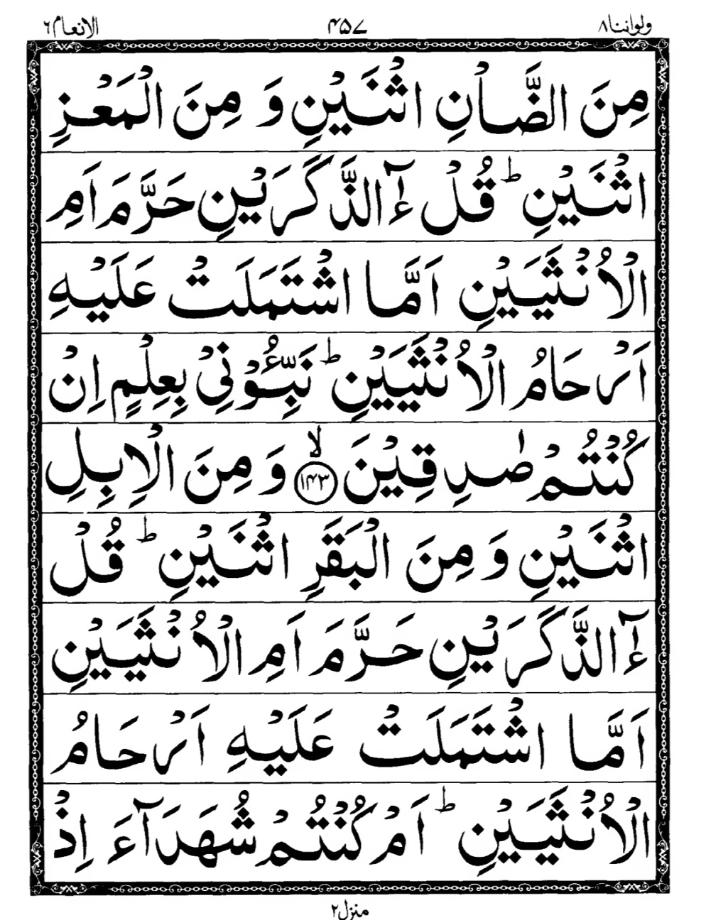 ولواننا۸ ۴۵۷ الانعام۶
مِنَ الضَّاْنِ اثْنَيْنِ وَ مِنَ الْمَعْزِ
اثْنَيْنِ ؕ قُلْ ءٰٓالذَّكَرَيْنِ حَرَّمَ اَمِ
الْاُنْثَيَيْنِ اَمَّا اشْتَمَلَتْ عَلَيْهِ
اَرْحَامُ الْاُنْثَيَيْنِ ؕ نَبِّـُٔوْنِيْ بِعِلْمٍ اِنْ
كُنْتُمْ صٰدِقِيْنَ ۙ‏﴿۱۴۳﴾ وَ مِنَ الْاِبِلِ
اثْنَيْنِ وَ مِنَ الْبَقَرِ اثْنَيْنِ ؕ قُلْ
ءٰٓالذَّكَرَيْنِ حَرَّمَ اَمِ الْاُنْثَيَيْنِ
اَمَّا اشْتَمَلَتْ عَلَيْهِ اَرْحَامُ
الْاُنْثَيَيْنِ ؕ اَمْ كُنْتُمْ شُهَدَآءَ اِذْ
منزل۲